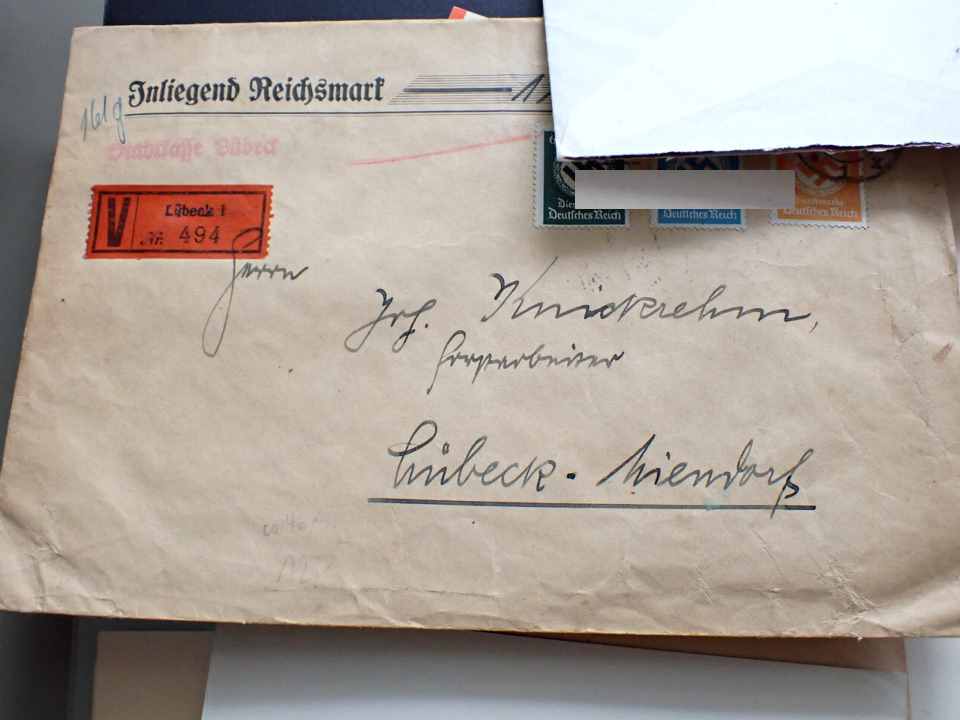 Inliegend Reichsmark
161 g
Stadtkasse Lübeck
V
Lübeck 1
Nr. 494
Deutsches Reich
Deutsches Reich
Deutsches Reich
Herrn
Joh. Knickrehm,
Forstarbeiter
Lübeck-Niendorf